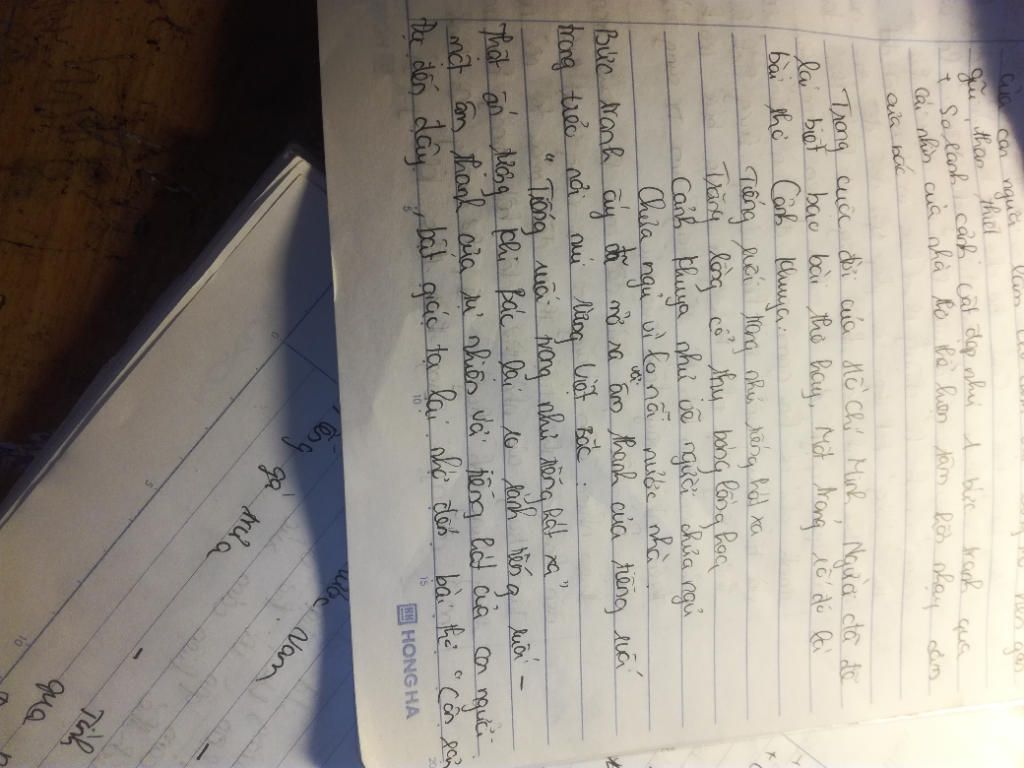 của con người
gũi, thân thuộc
+ So sánh cảnh cất đẹp như 1 bức tranh qua
cái nhìn của nhà thơ → tâm hồn nhạy cảm
của Bác
Trong cuộc đời của Hồ Chí Minh Người đã để
lại biết bao bài thơ hay, Một trong số đó là
bài thơ Cảnh khuya:
Tiếng suối trong như tiếng hát xa
Trăng lồng cổ thụ bóng lồng hoa
Cảnh khuya như vẽ người chưa ngủ
Chưa ngủ vì lo nỗi nước nhà.
Bức tranh ấy đã mở ra với âm thanh của tiếng suối
trong trẻo nơi núi rừng Việt Bắc.
"Tiếng suối trong như tiếng hát xa"
Thật ấn tượng khi Bác lại so sánh tiếng suối -
một âm thanh của tự nhiên với tiếng hát của con người.
Đọc đến đây, bất giác ta lại nhớ đến bài thơ "Côn Sơn
HONG HA
Tiếng gà trưa
Tình
qua